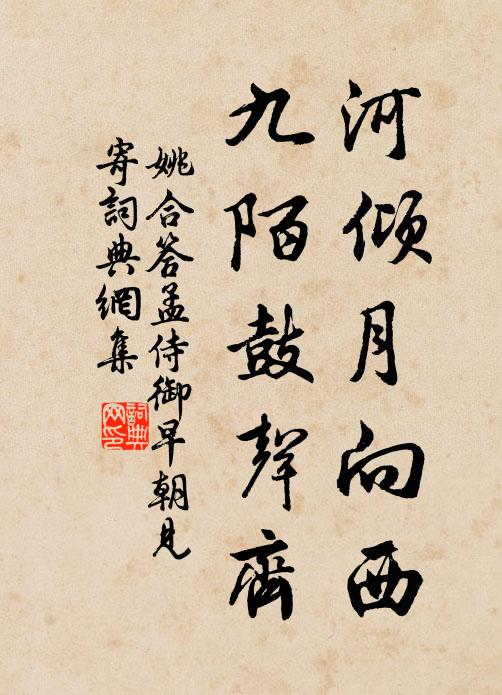 河傾月向西
九陌鼓聲齊
姚合答孟侍御早朝見
寄詞典網集
詞典
网印